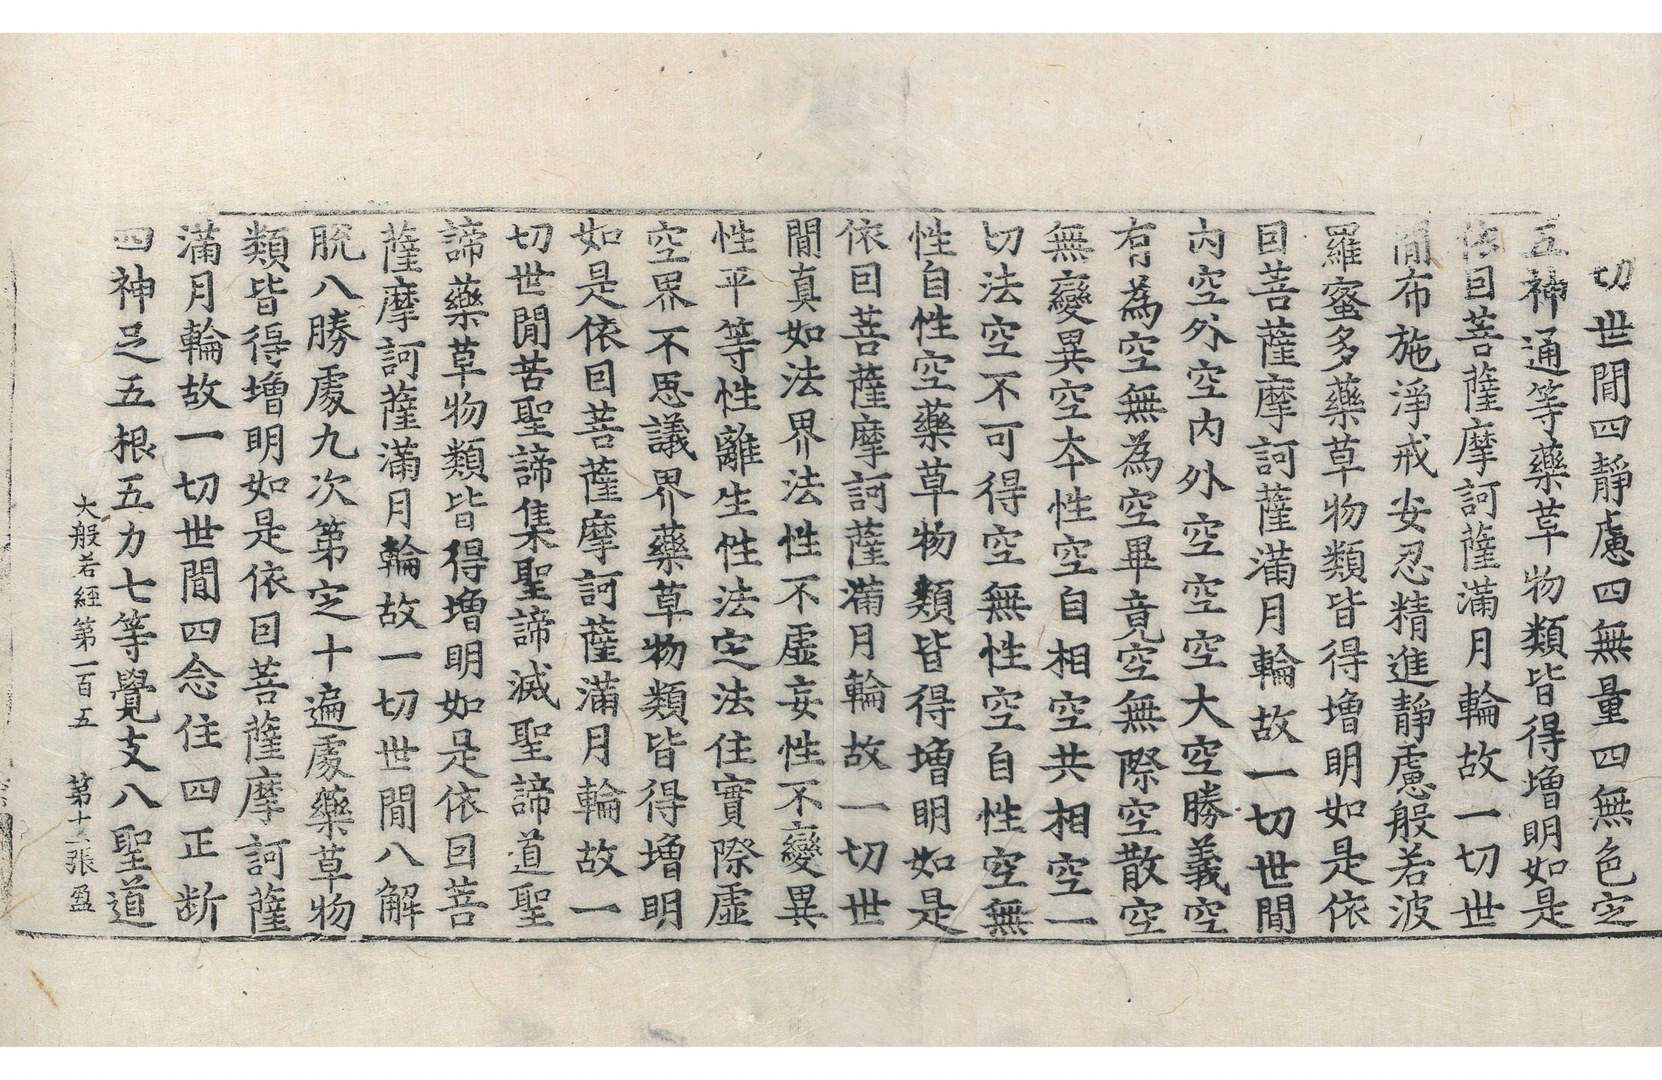 切世間四靜慮四無量四無色定
五神通等藥草物類皆得增明如是
依因菩薩摩訶薩滿月輪故一切世
間布施淨戒安忍精進靜慮般若波
羅蜜多藥草物類皆得增明如是依
因菩薩摩訶薩滿月輪故一切世間
內空外空內外空空空大空勝義空
有為空無為空畢竟空無際空散空
無變異空本性空自相空共相空一
切法空不可得空無性空自性空無
性自性空藥草物類皆得增明如是
依因菩薩摩訶薩滿月輪故一切世
間真如法界法性不虛妄性不變異
性平等性離生性法定法住實際虛
空界不思議界藥草物類皆得增明
如是依因菩薩摩訶薩滿月輪故一
切世間苦聖諦集聖諦滅聖諦道聖
諦藥草物類皆得增明如是依因菩
薩摩訶薩滿月輪故一切世間八解
脫八勝處九次第定十遍處藥草物
類皆得增明如是依因菩薩摩訶薩
滿月輪故一切世間四念住四正斷
四神足五根五力七等覺支八聖道
大般若經第一百五 第十二張 盈